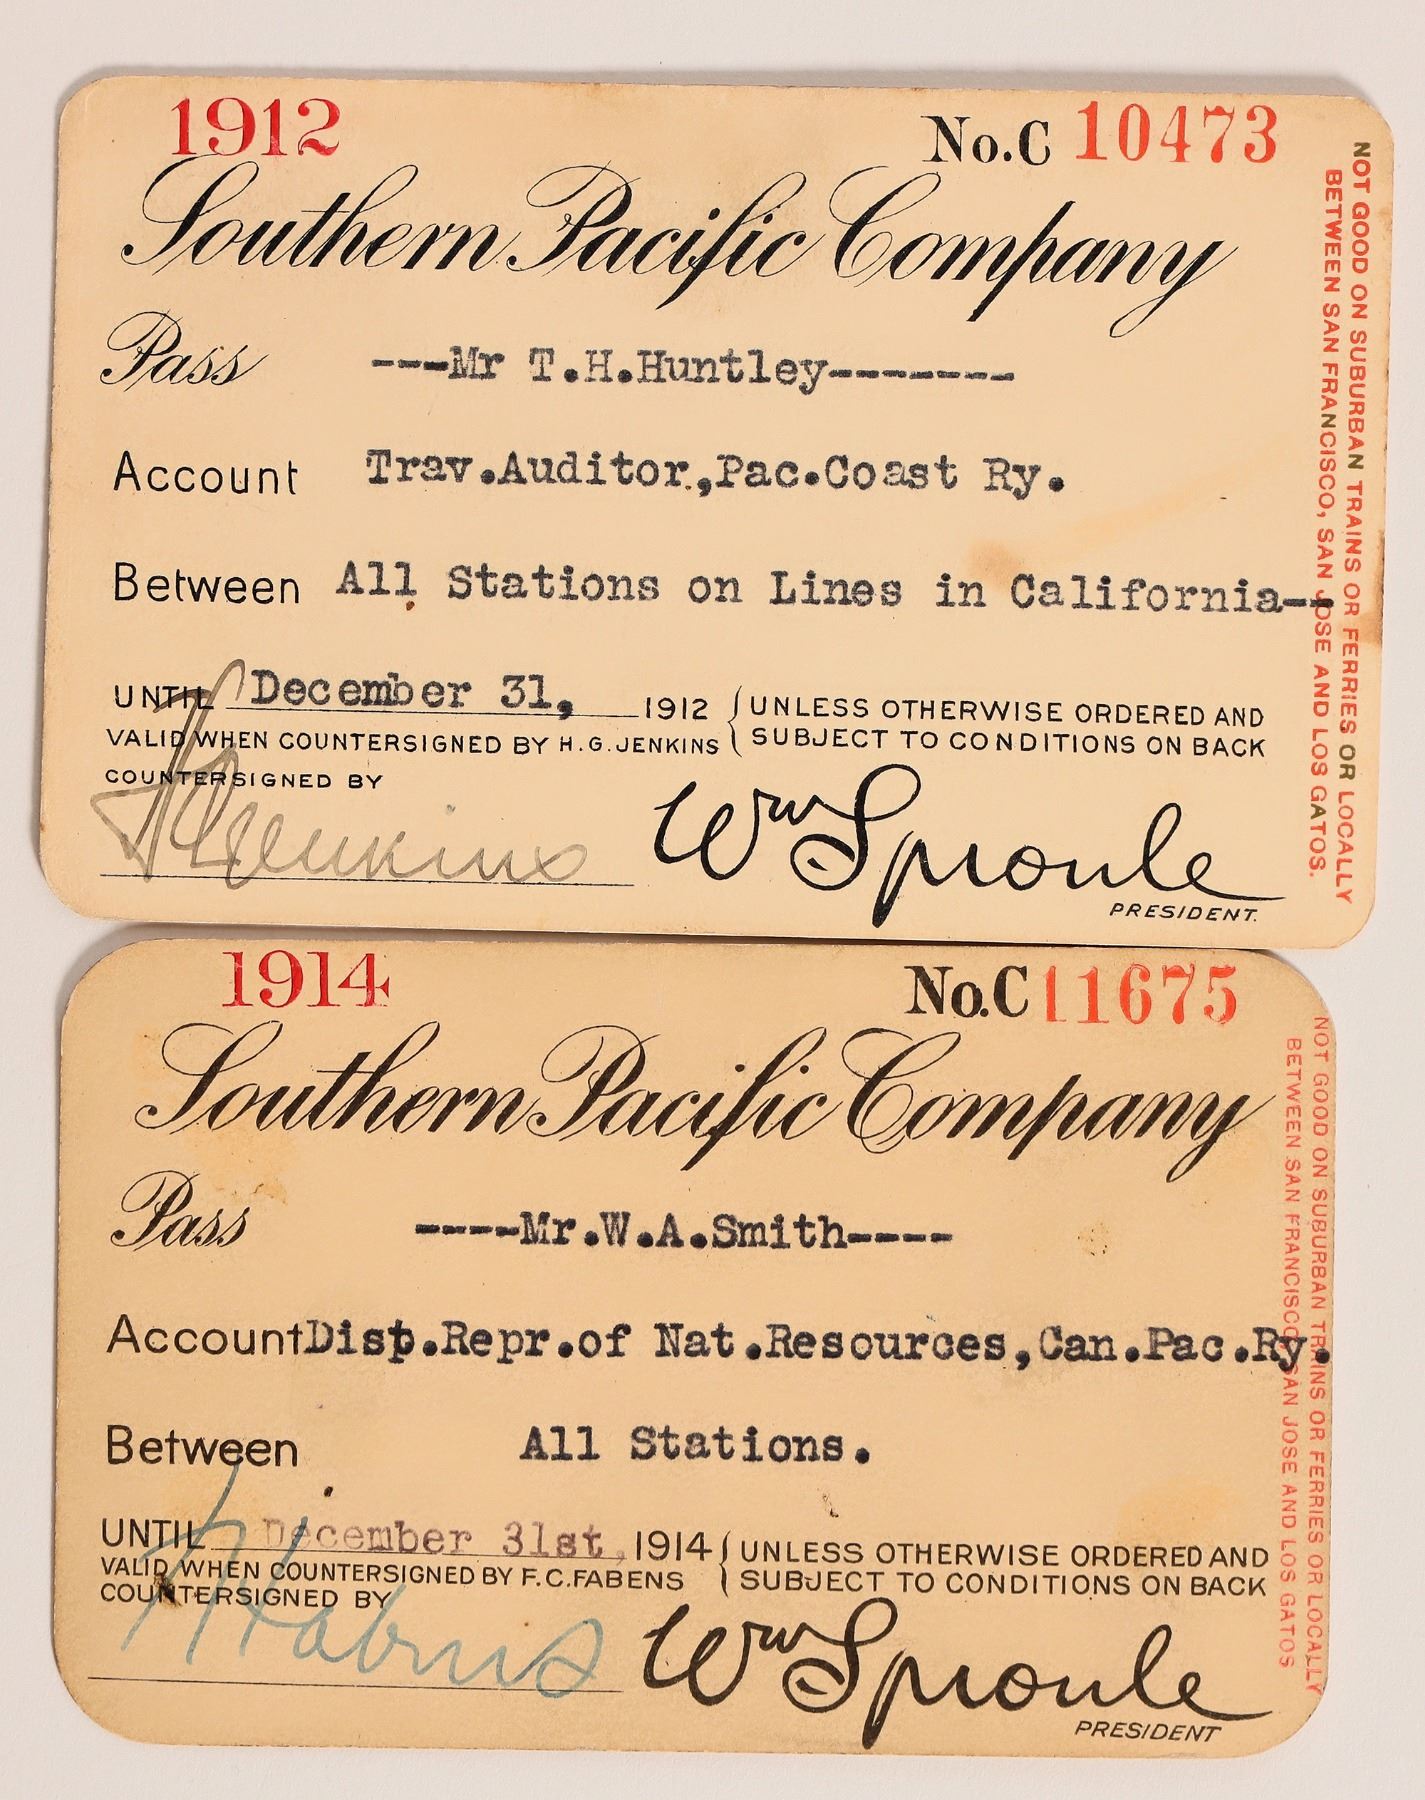 1912
No.C 10473
Southern Pacific Company
Pass ---Mr T.H.Huntley-------
Account Trav.Auditor,Pac.Coast Ry.
Between All Stations on Lines in California--
UNTIL December 31, 1912 { UNLESS OTHERWISE ORDERED AND
VALID WHEN COUNTERSIGNED BY H.G.JENKINS SUBJECT TO CONDITIONS ON BACK
COUNTERSIGNED BY
HGJenkins
Wm Sproule
PRESIDENT.
NOT GOOD ON SUBURBAN TRAINS OR FERRIES OR LOCALLY
BETWEEN SAN FRANCISCO, SAN JOSE AND LOS GATOS.
1914
No.C 11675
Southern Pacific Company
Pass ----Mr.W.A.Smith----
Account Dist.Repr.of Nat.Resources,Can.Pac.Ry.
Between All Stations.
UNTIL December 31st, 1914 { UNLESS OTHERWISE ORDERED AND
VALID WHEN COUNTERSIGNED BY F.C.FABENS SUBJECT TO CONDITIONS ON BACK
COUNTERSIGNED BY
Fabens
Wm Sproule
PRESIDENT
NOT GOOD ON SUBURBAN TRAINS OR FERRIES OR LOCALLY
BETWEEN SAN FRANCISCO, SAN JOSE AND LOS GATOS